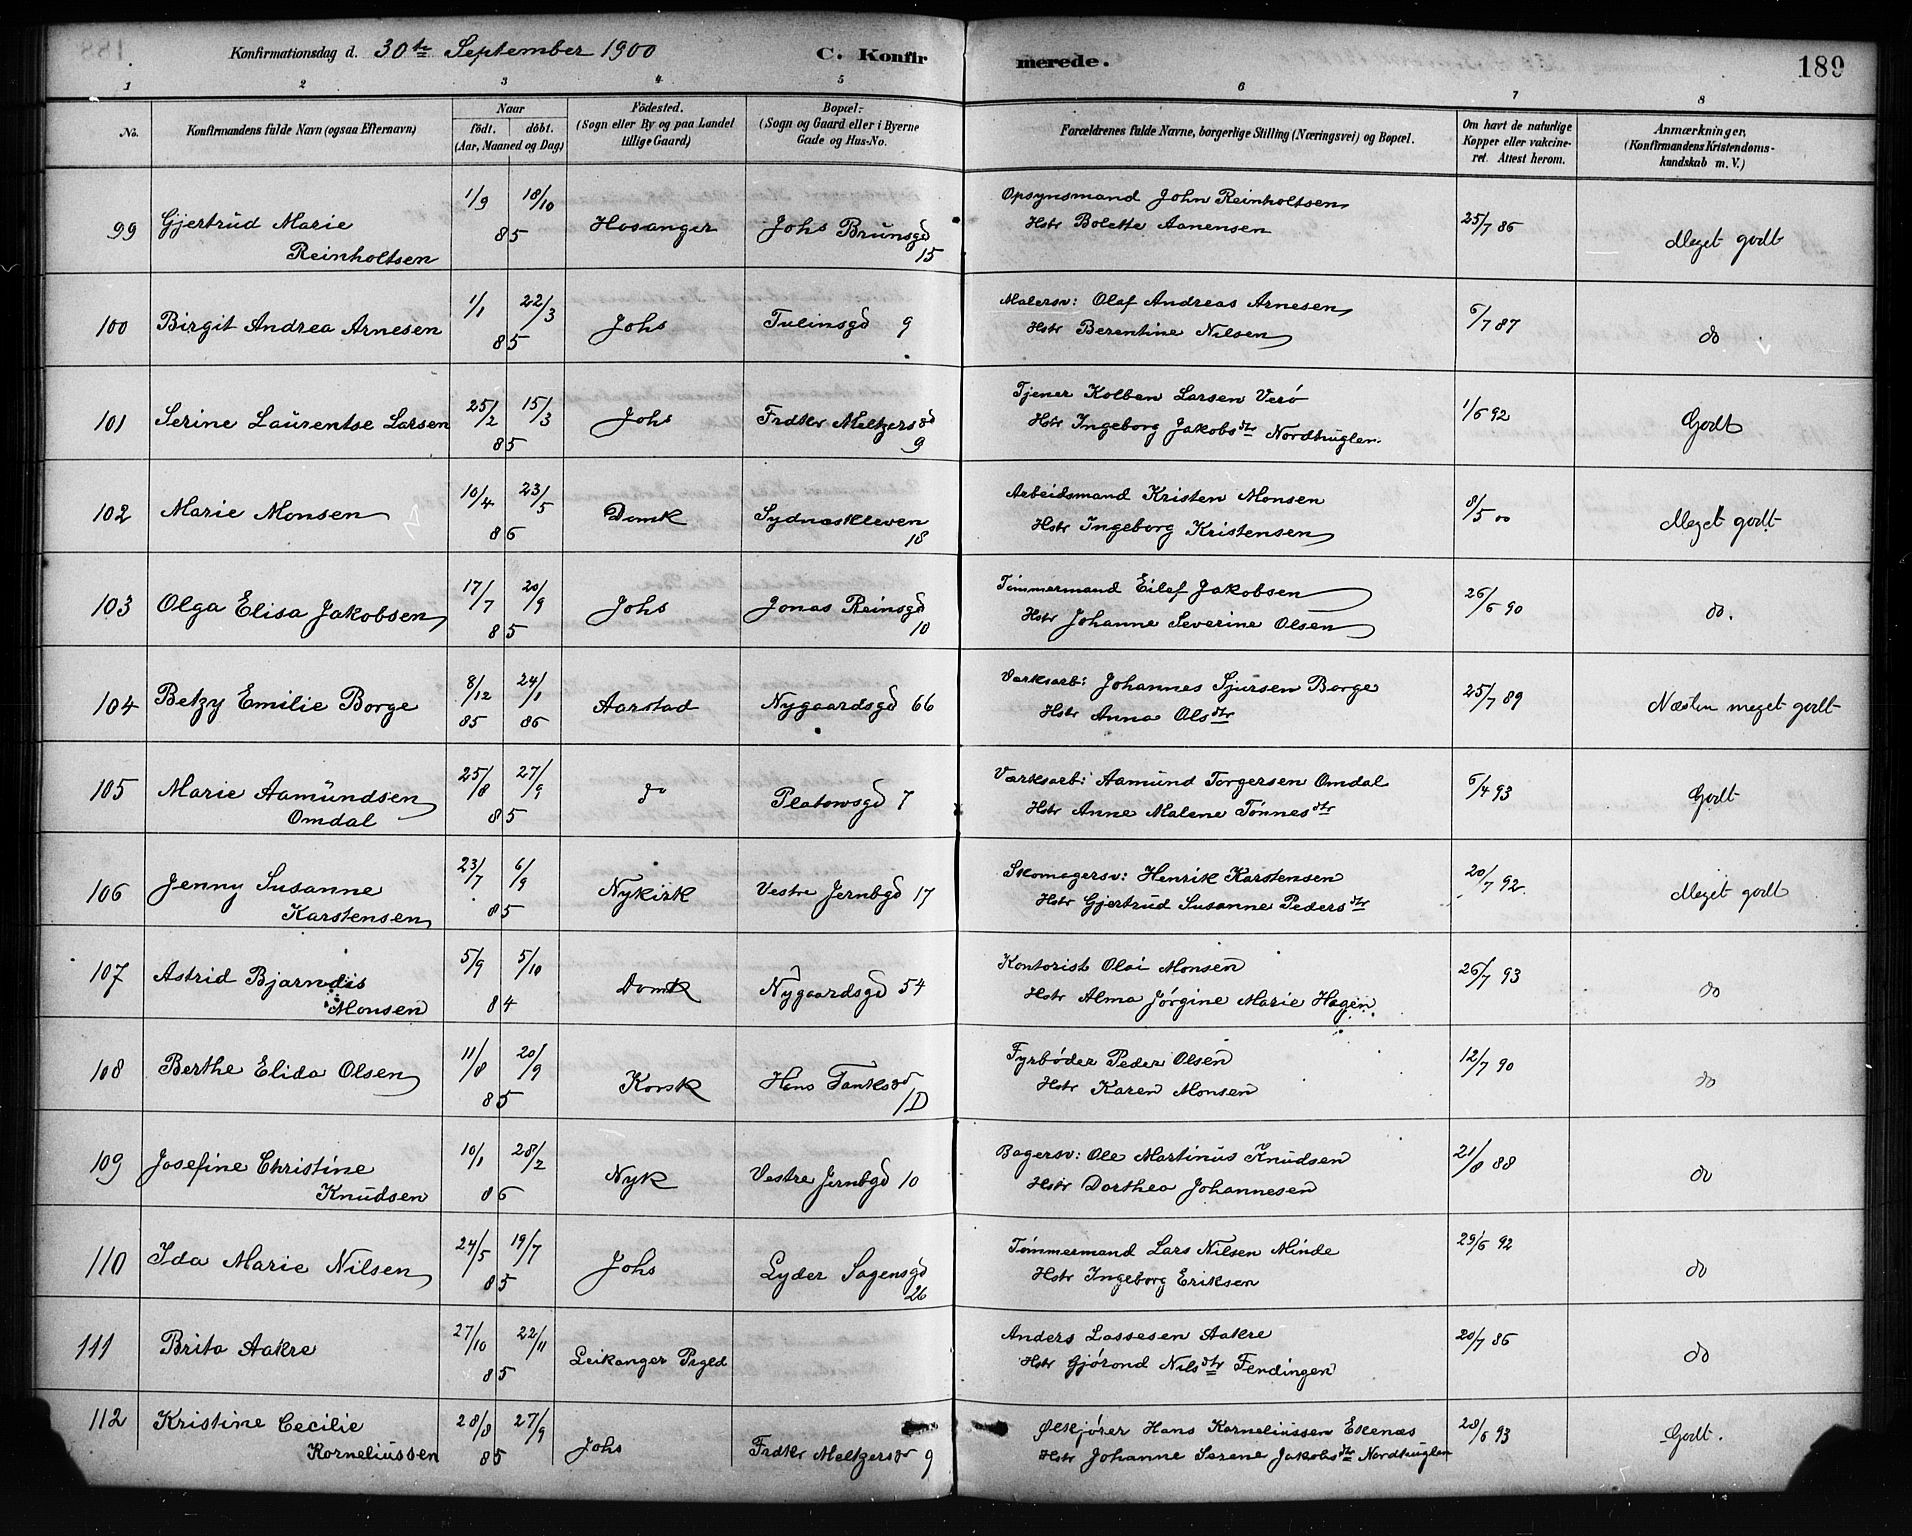 Konfirmationsdag d. 30te September 1900 C. Konfirmerede. 189
1 2 3 4 5 6 7 8
No. Konfirmandens fulde Navn (ogsaa Efternavn) Naar födt. döbt. (Aar, Maaned og Dag) Födested. (Sogn eller By og paa Landet tillige Gaard) Bopæl- (Sogn og Gaard eller i Byerne Gade og Hus-No. Forældrenes fulde Navne, borgerlige Stilling (Næringsvei) og Bopæl. Om havt de naturlige Kopper eller vakcineret. Attest herom. Anmærkninger, (Konfirmandens Kristendomskundskab m. V.)
99 Gjertrud Marie Reinholtsen 1/9 18/10 85 Hosanger Johs Brunsgd 15 Opsynsmand John Reinholtsen 25/7 86 Meget godt
Hstr Bolette Aanensen
100 Birgit Andrea Arnesen 1/1 22/3 85 Johs Tulinsgd 9 Malersv: Olaf Andreas Arnesen 6/7 87 do
Hstr Berentine Nilsen
101 Serine Laurentse Larsen 25/2 15/3 85 Johs Frdkr Meltzersgd 9 Tjener Kolben Larsen Verö 1/6 92 Godt
Hstr Ingeborg Jakobsdtr Nordhuglen
102 Marie Monsen 10/4 23/5 86 Domk Sydneskleven 18 Arbeidsmand Kristen Monsen 8/5 00 Meget godt
Hstr Ingeborg Kristensen
103 Olga Elisa Jakobsen 17/7 20/9 85 Johs Jonas Reinsgd 10 Tömmermand Eilef Jakobsen 26/6 90 do.
Hstr Johanne Severine Olsen
104 Betzy Emilie Borge 8/12 85 24/1 86 Aarstad Nygaardsgd 66 Værksarb: Johannes Sjursen Borge 25/7 89 Næsten meget godt
Hstr Anna Olsdtr
105 Marie Aamundsen Omdal 25/8 27/9 85 do Platousgd 7 Værksarb: Aamund Torgersen Omdal 6/4 93 Godt
Hstr Anne Malene Tönnesdtr
106 Jenny Susanne Karstensen 23/7 6/9 85 Nykirk Vestre Jernbgd 17 Skomagersv: Henrik Karstensen 20/7 92 Meget godt
Hstr Gjertrud Susanne Pedersdtr
107 Astrid Bjarndis Monsen 5/9 5/10 84 Domk Nygaardsgd 54 Kontorist Olai Monsen 26/7 93 do
Hstr Alma Jörgine Marie Hagen
108 Berthe Elida Olsen 11/8 20/9 85 Korsk Hans Tanksgd 1D Fyrböder Peder Olsen 12/7 90 do
Hstr Karen Monsen
109 Josefine Christine Knudsen 10/1 28/2 86 Nyk Vestre Jernbgd 10 Bagersv: Ole Martinus Knudsen 21/8 88 do
Hstr Dorthea Johannesen
110 Ida Marie Nilsen 24/5 19/7 85 Johs Lyder Sagensgd 26 Tömmermand Lars Nilsen Minde 29/6 92 do
Hstr Ingeborg Eriksen
111 Brita Aakre 27/10 22/11 85 Leikanger Prgld Anders Lassesen Aakre 20/7 86 do
Hstr Gjörond Nilsdtr Fendingen
112 Kristine Cecilie Korneliussen 28/8 27/9 85 Johs Frdkr Meltzersgd 9 Ölkjörer Hans Korneliussen Eskenæs 28/6 93 Godt.
Hstr Johanne Serene Jakobsdtr Nordhuglen